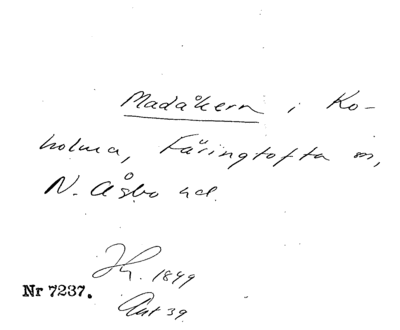 Madåkern i Ko-
holma, Färingtofta sn,
N. Åsbo hd.
1849
Nr 7237.
Akt 39